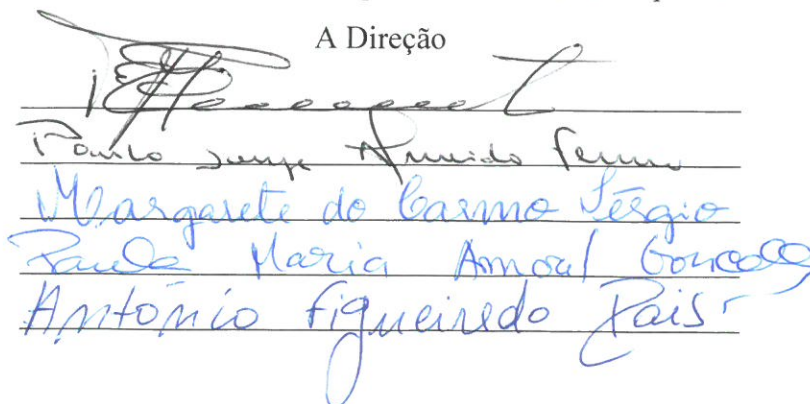 A Direção
Paulo Jorge Almeida
Margarete do Carmo Sérgio
Paula Maria Amaral Goncalves
António Figueiredo Pais